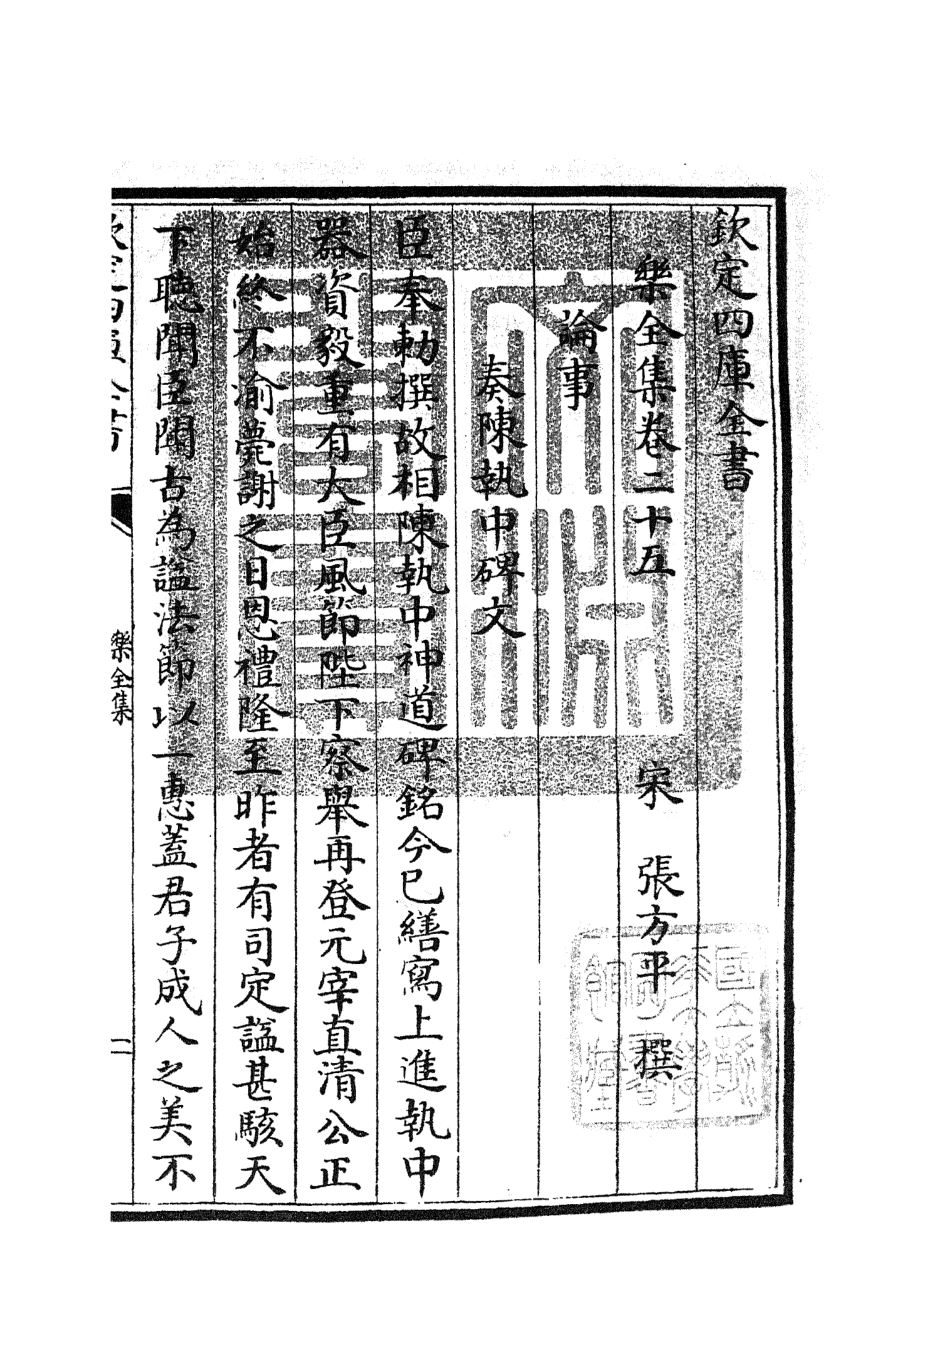 欽定四庫全書
樂全集卷二十五　宋　張方平　撰
論事
奏陳執中碑文
臣奉勅撰故相陳執中神道碑銘今已繕寫上進執中
器資毅重有大臣風節陛下察舉再登元宰直清公正
始終不渝薨謝之日恩禮隆至昨者有司定諡甚駭天
下聽聞臣聞古為諡法節以一惠蓋君子成人之美不
欽定四庫全書
樂全集
一